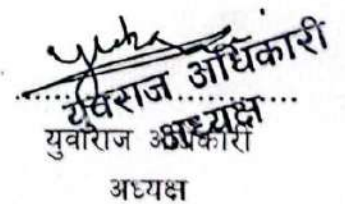 युवराज अधिकारी
अध्यक्ष
युवाराज अधिकारी
अध्यक्ष